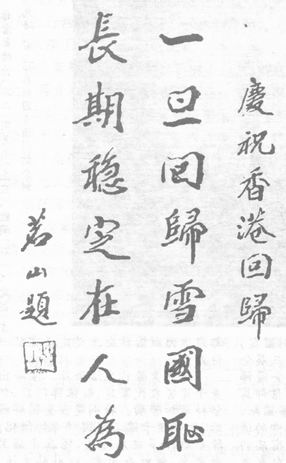 慶祝香港回歸
一旦回歸雪國恥
長期穩定在人為
茗山題